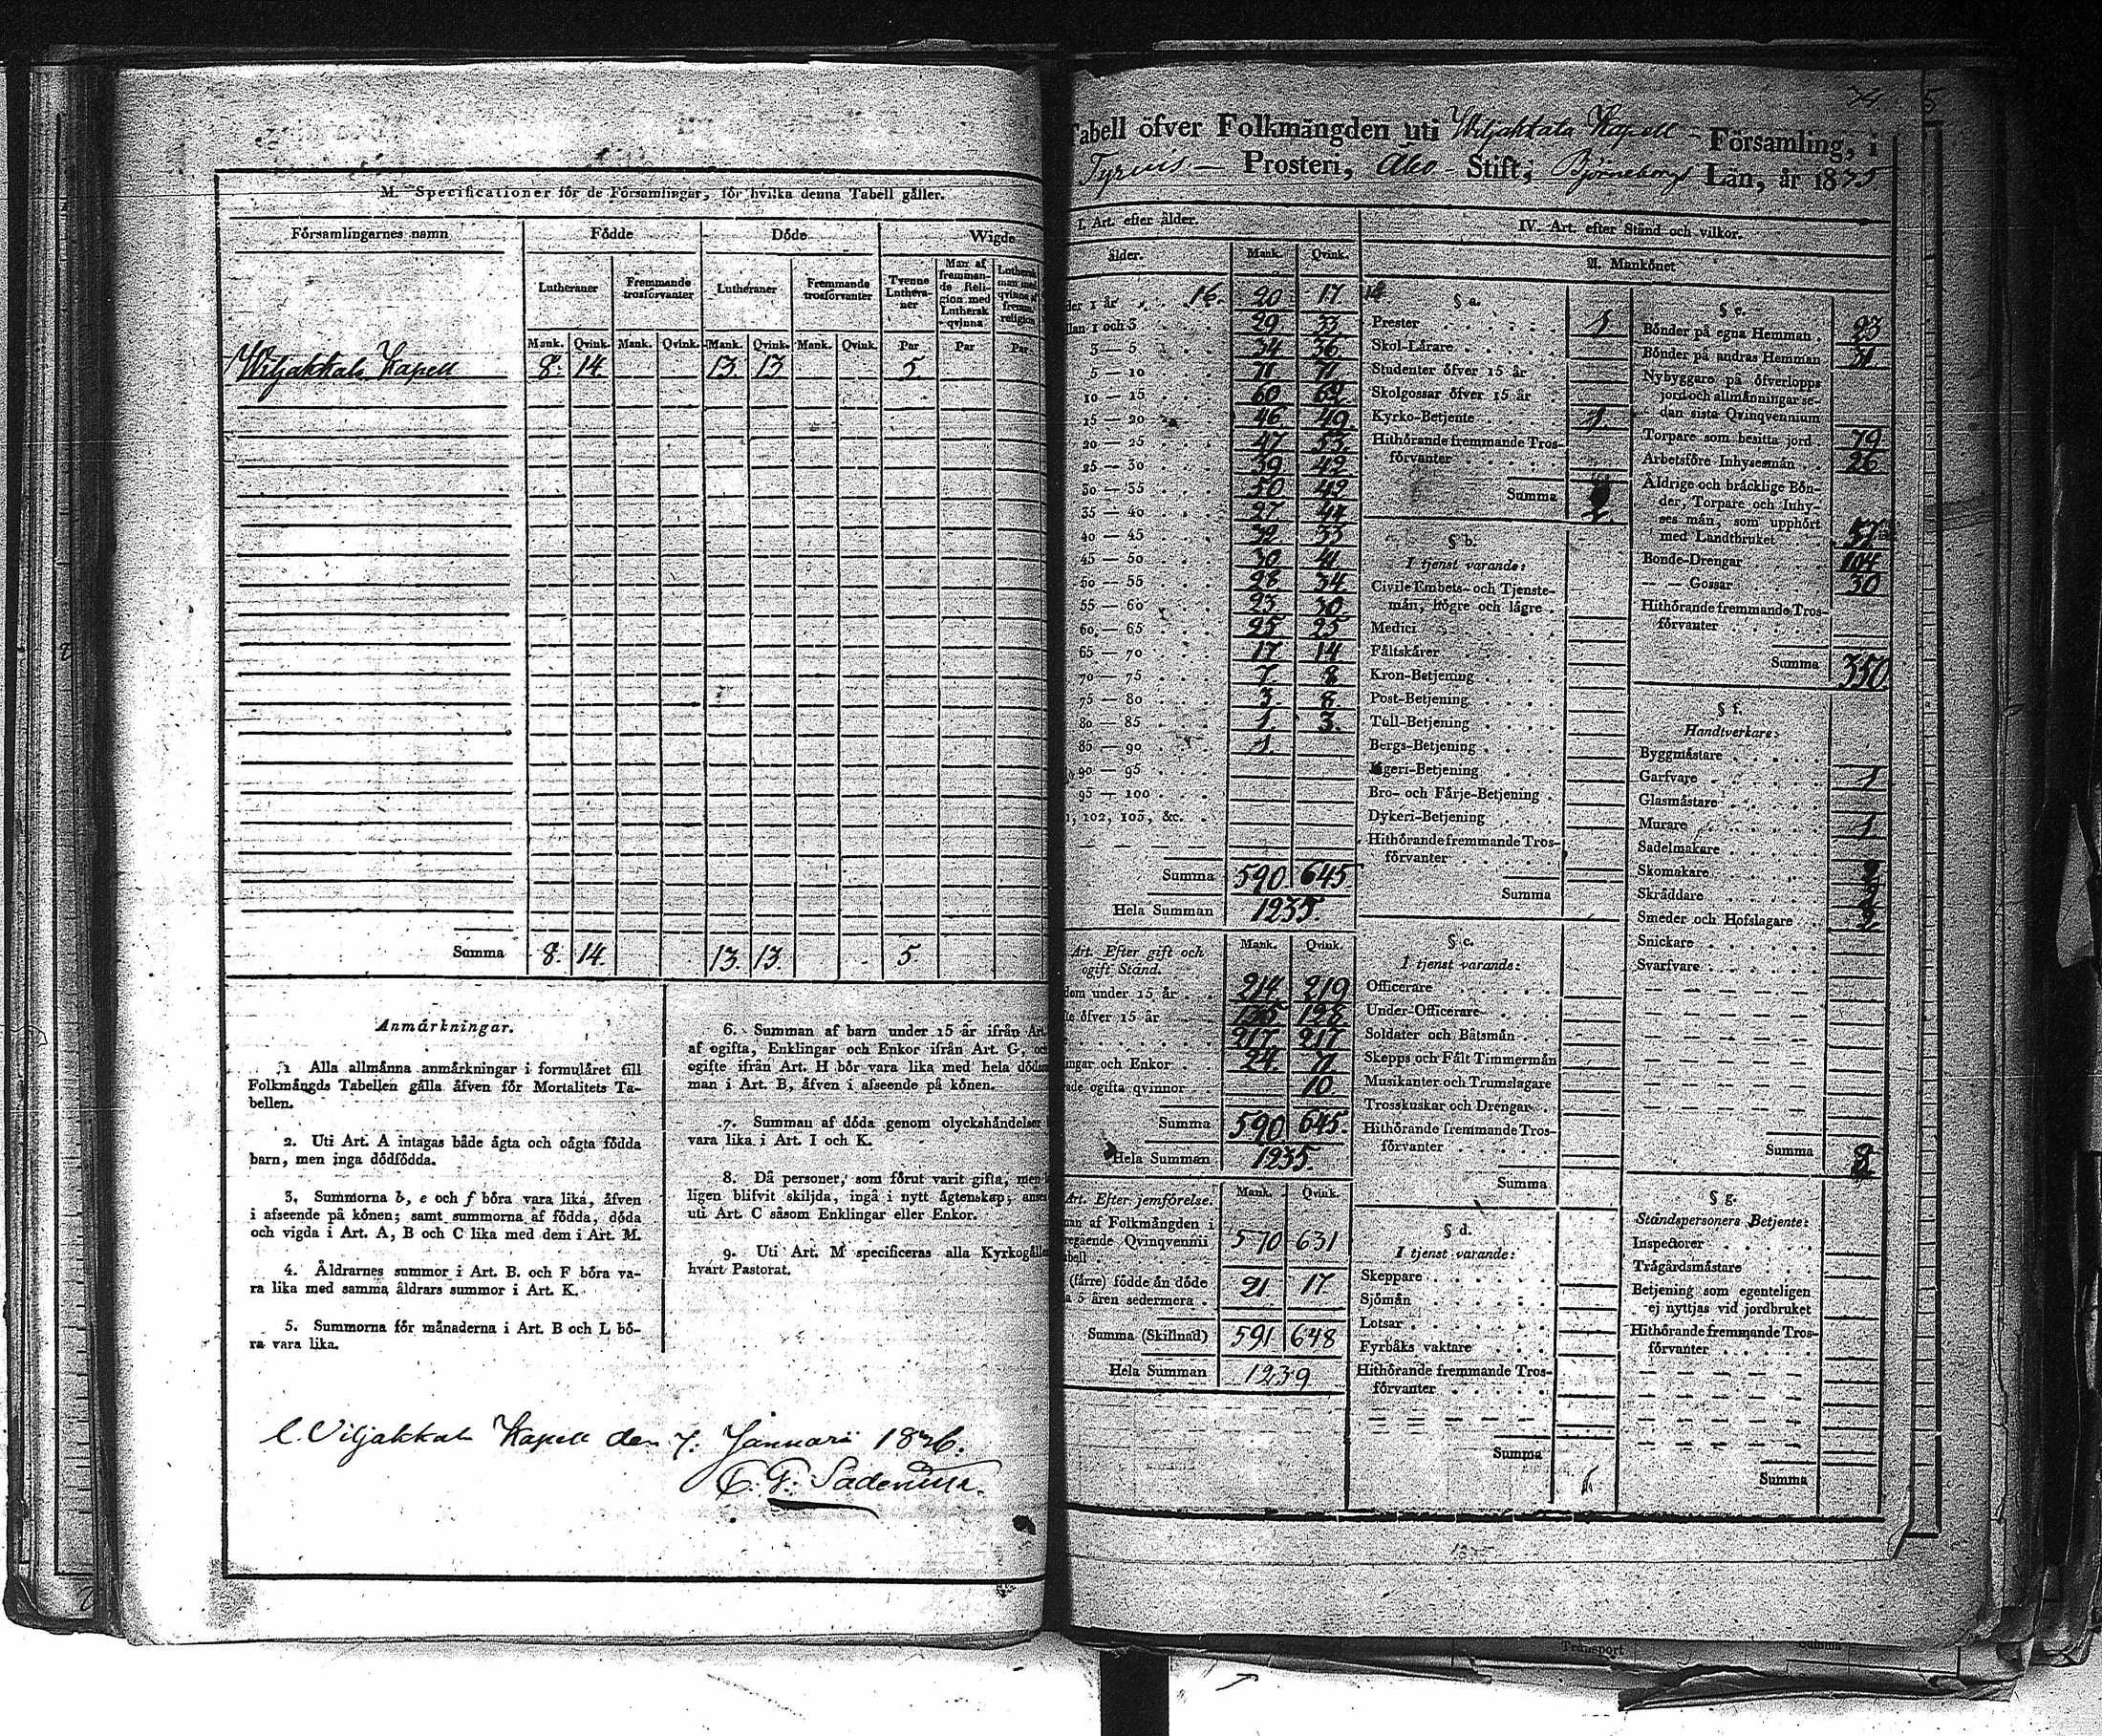 M. Specificationer för de Församlingar, för hvilka denna Tabell gäller.
Församlingarnes namn
Födde
Döde
Wigde
Lutheraner
Fremmande trosförvanter
Lutheraner
Fremmande trosförvanter
Tvenne Lutheraner
Man af fremmande Religion med Luthersk qvinna
Luthersk man med qvinna af fremm. religion
Mank. Qvink. Mank. Qvink. Mank. Qvink. Mank. Qvink. Par Par Par
Wiljakkala Kapell 8. 14. 13. 13. 5.
Summa 8. 14. 13. 13. 5
Anmärkningar.
1 Alla allmänna anmärkningar i formuläret till
Folkmängds Tabellen gälla äfven för Mortalitets Ta-
bellen.
2. Uti Art. A intagas både ägta och oägta födda
barn, men inga dödfödda.
3. Summorna b, e och f böra vara lika, äfven
i afseende på könen; samt summorna af födda, döda
och vigda i Art. A, B och C lika med dem i Art. M.
4. Åldrarnes summor i Art. B. och F böra va-
ra lika med samma åldrars summor i Art. K.
5. Summorna för månaderna i Art. B och L bö-
ra vara lika.
6. Summan af barn under 15 år ifrån Art.
af ogifta, Enklingar och Enkor ifrån Art. G, och
ogifte ifrån Art. H bör vara lika med hela dödsu
man i Art. B, äfven i afseende på könen.
7. Summan af döda genom olyckshändelser
vara lika i Art. I och K.
8. Då personer, som förut varit gifta, men
ligen blifvit skiljda, ingå i nytt ägtenskap; anses
uti Art. C såsom Enklingar eller Enkor.
9. Uti Art. M specificeras alla Kyrkogälle
hvart Pastorat.
Wiljakkala Kapell den 7. Januari 1836.
Tabell öfver Folkmängden uti Wiljakkala Kapell Församling, i
Tyrvis Prosteri, Åbo Stift, Björneborgs Län, år 1835
I. Art. efter ålder.
ålder. Mank. Qvink.
der 1 år 16. 20 17
llan 1 och 3 29 33
3 — 5 34 36
5 — 10 71 71
10 — 15 60 62
15 — 20 46 49
20 — 25 47 53
25 — 30 39 42
30 — 35 50 42
35 — 40 27 44
40 — 45 32 33
45 — 50 30 41
50 — 55 28 34
55 — 60 23 30
60 — 65 25 25
65 — 70 17 14
70 — 75 7 8
75 — 80 3 8
80 — 85 1 3
85 — 90 1
90 — 95
95 — 100
102, 103, &c.
Summa 590 645
Hela Summan 1235.
Art. Efter gift och
ogift Stånd.
Mank. Qvink.
dom under 15 år 214 219
te öfver 15 år 135 128
217 217
ingar och Enkor 24 71
ade ogifta qvinnor 10
Summa 590 645
Hela Summan 1235
Art. Efter jemförelse. Mank. Qvink.
man af Folkmängden i
regående Qvinqvennii
abell 570 631
(färre) födde än döde
a 5 åren sedermera 21 17
Summa (Skillnad) 591 648
Hela Summan 1239
IV. Art. efter Stånd och vilkor.
A. Mankönet
§ a.
Prester 1
Skol-Lärare
Studenter öfver 15 år
Skolgossar öfver 15 år
Kyrko-Betjente 1
Hithörande fremmande Tros-
förvanter
Summa 2
§ b.
I tjenst varande:
Civile Embets- och Tjenste-
män, högre och lägre
Medici
Fältskärer
Kron-Betjening
Post-Betjening
Tull-Betjening
Bergs-Betjening
Jägeri-Betjening
Bro- och Färje-Betjening
Dykeri-Betjening
Hithörande fremmande Tros-
förvanter
Summa
§ c.
I tjenst varande:
Officerare
Under-Officerare
Soldater och Båtsmän
Skepps och Fält Timmermän
Musikanter och Trumslagare
Trosskuskar och Drengar
Hithörande fremmande Tros-
förvanter
Summa
§ d.
I tjenst varande:
Skeppare
Sjömän
Lotsar
Fyrbåks vaktare
Hithörande fremmande Tros-
förvanter
Summa
§ e.
Bönder på egna Hemman 23
Bönder på andras Hemman 31
Nybyggare på öfverlopps
jord och allmänningar se-
dan sista Qvinqvennium
Torpare som besitta jord 79
Arbetsföre Inhysesmän 26
Åldrige och bräcklige Bön-
der, Torpare och Inhy-
ses män, som upphört
med Landtbruket 57
Bonde-Drengar 104
— — Gossar 30
Hithörande fremmande Tros-
förvanter
Summa 350
§ f.
Handtverkare:
Byggmästare
Garfvare 1
Glasmästare
Murare 1
Sadelmakare
Skomakare 2
Skräddare
Smeder och Hofslagare 2
Snickare
Svarfvare
Summa 8
§ g.
Ståndspersoners Betjente:
Inspector
Trägårdsmästare
Betjening som egenteligen
ej nyttjas vid jordbruket
Hithörande fremmande Tros-
förvanter
Summa
Transport